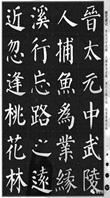 晉太元中武陵
人捕魚爲業緣
溪行忘路之遠
近忽逢桃花林